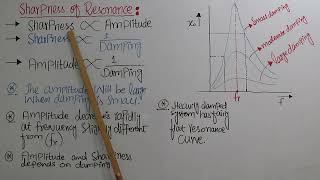 Sharpness of Resonance:
→ Sharpness ∝ Amplitude
→ Sharpness ∝ 1/Damping
→ Amplitude ∝ 1/Damping
⊛ The amplitude will be large when damping is small.
⊛ Amplitude decreases rapidly
at frequency slightly different
from (fr)
⊛ Amplitude and Sharpness
depends on damping
x₀
small damping
moderate damping
large damping
fr
f
⊛ Heavily damped
system has fairly
flat resonance
curve.